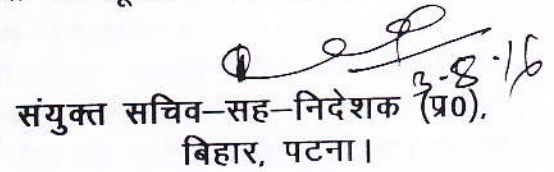 3-8-16
संयुक्त सचिव–सह–निदेशक (प्र0),
बिहार, पटना।